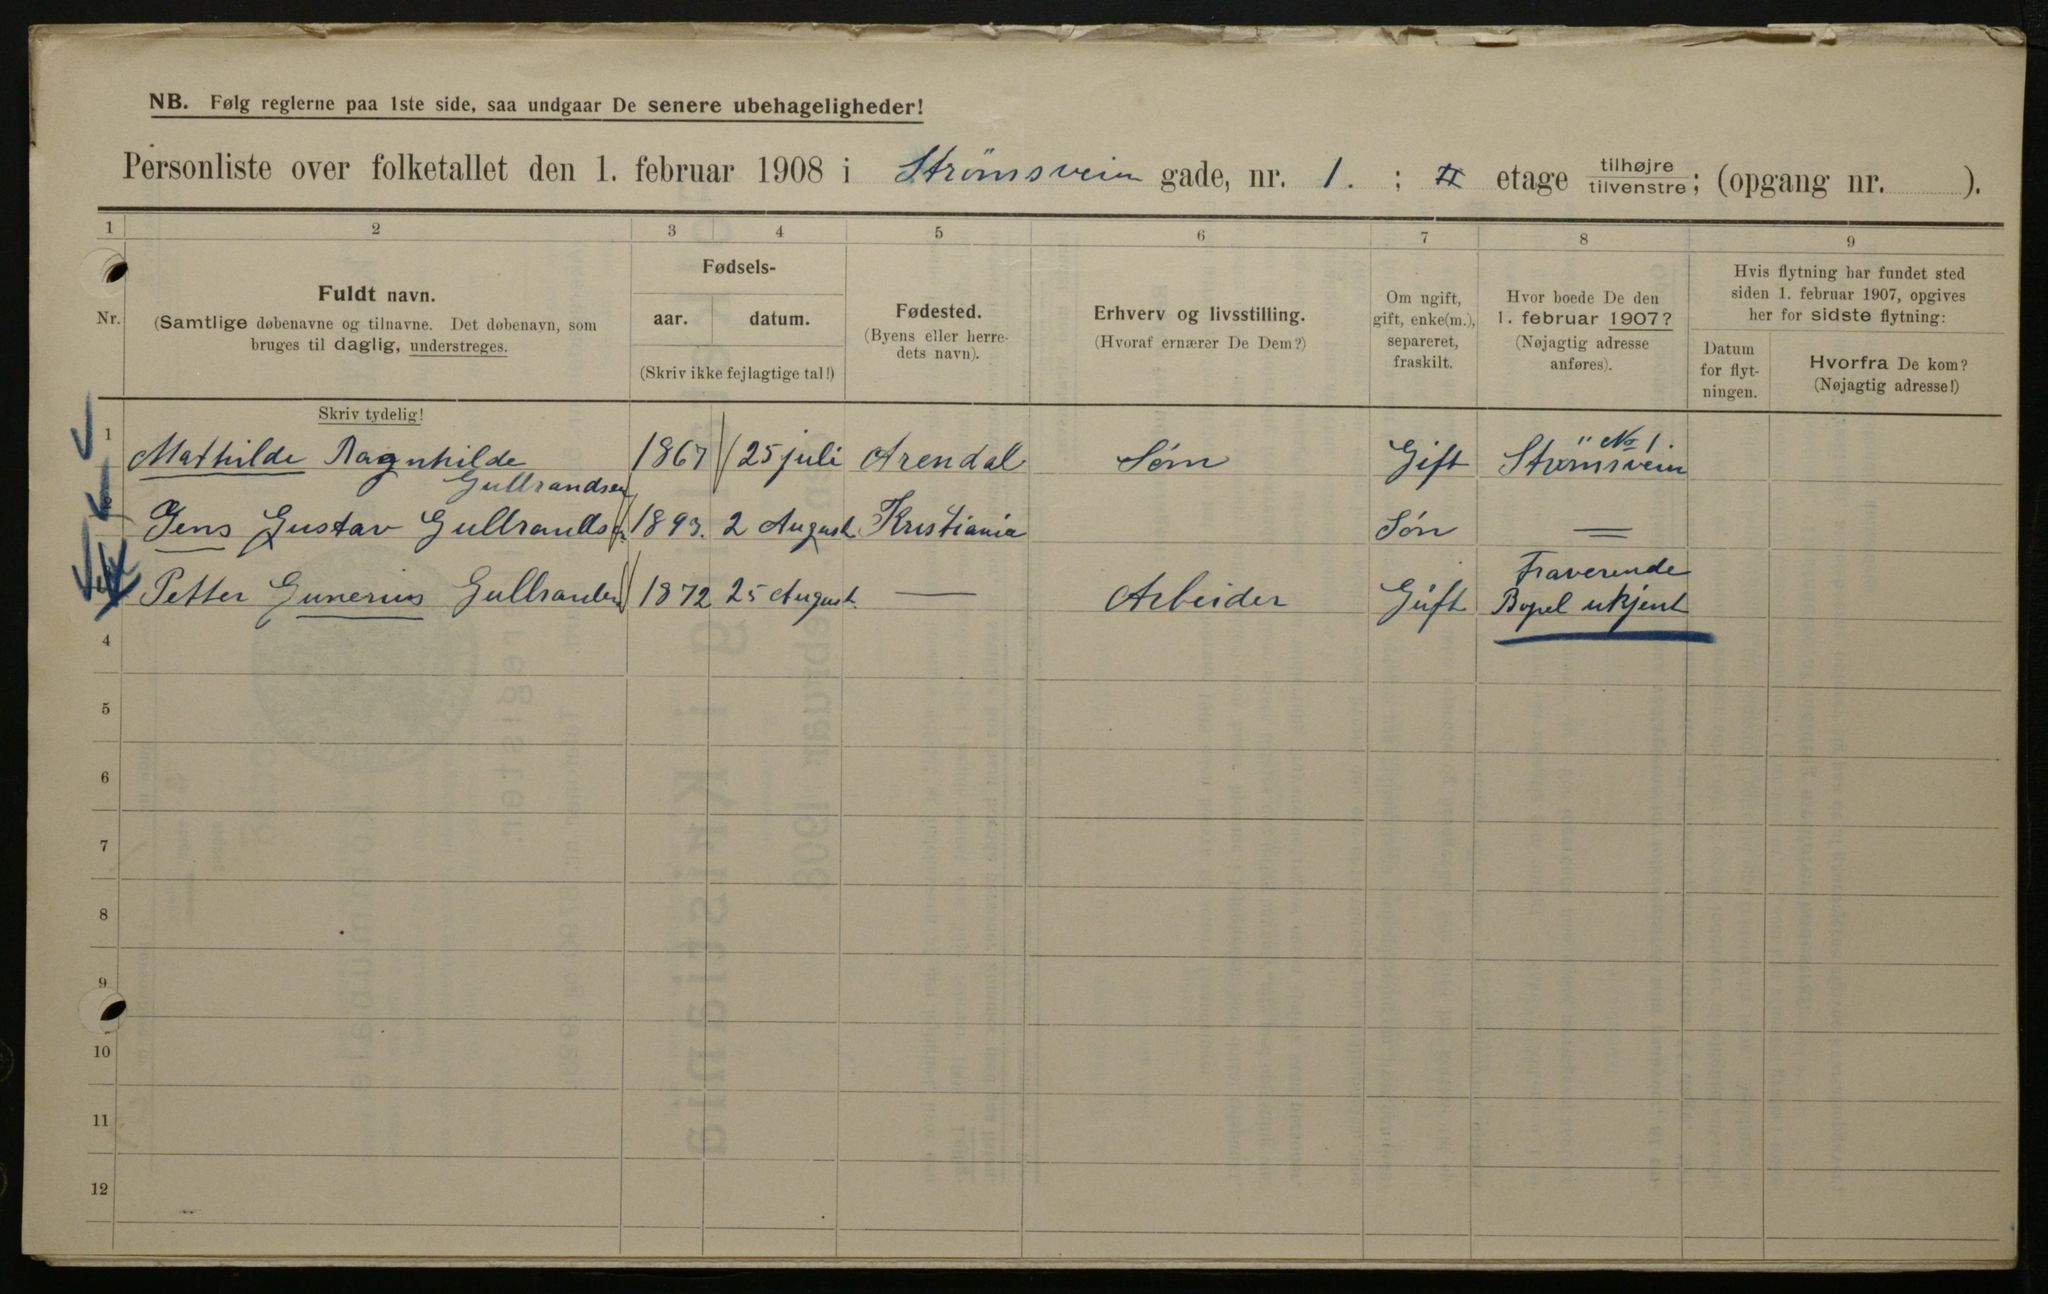 NB. Følg reglerne paa 1ste side, saa undgaar De senere ubehageligheder!
Personliste over folketallet den 1. februar 1908 i Strömsveien gade, nr. 1. ; II etage tilhøjre tilvenstre; (opgang nr. ).
1 2 3 4 5 6 7 8 9
Nr.
Fuldt navn.
(Samtlige døbenavne og tilnavne. Det døbenavn, som
bruges til daglig, understreges.
Fødsels-
aar. datum.
(Skriv ikke fejlagtige tal!)
Fødested.
(Byens eller herre-
dets navn).
Erhverv og livsstilling.
(Hvoraf ernærer De Dem?)
Om ugift,
gift, enke(m.),
separeret,
fraskilt.
Hvor boede De den
1. februar 1907?
(Nøjagtig adresse
anføres).
Hvis flytning har fundet sted
siden 1. februar 1907, opgives
her for sidste flytning:
Datum
for flyt-
ningen.
Hvorfra De kom?
(Nøjagtig adresse!)
Skriv tydelig!
1 Mathilde Ragnhilde Gulbrandsen 1867 25 juli Arendal Søm Gift Strömsvein No 1.
Jens Gustav Gulbrands 1893. 2 August Kristiania Søn =
Petter Gunerius Gulbrandsen 1872 25 August. — Arbeider Gift Fraverende
Bopel ukjent
4
5
6
7
8
9
10
11
12